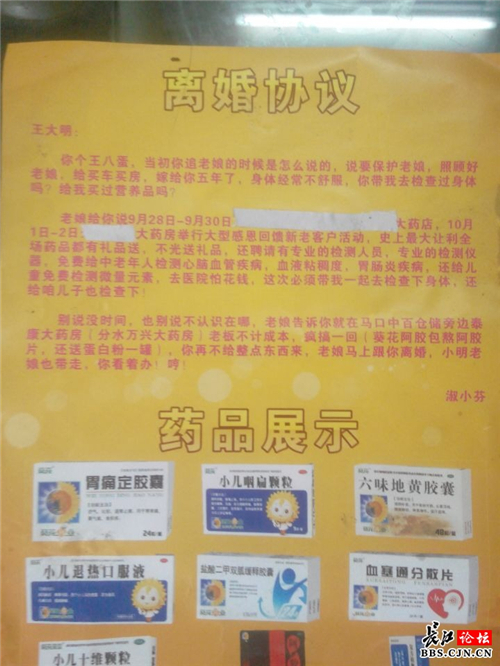 离婚协议
王大明：
你个王八蛋，当初你追老娘的时候是怎么说的，说要保护老娘，照顾好
老娘，给买车买房，嫁给你五年了，身体经常不舒服，你带我去检查过身体
吗？给我买过营养品吗？
老娘给你说9月28日-9月30日 大药店，10月
1日-2日 大药房举行大型感恩回馈新老客户活动，史上最大让利全
场药品都有礼品送，不光送礼品，还聘请有专业的检测人员，专业的检测仪
器，免费给中老年人检测心脑血管疾病，血液粘稠度，胃肠炎疾病，还给儿
童免费检测微量元素，去医院怕花钱，这次必须带我一起去检查下身体，还
给咱儿子也检查下！
别说没时间，也别说不认识在哪，老娘告诉你就在马口中百仓储旁边泰
康大药房（分水万兴大药房）老板不计成本，疯搞一回（葵花阿胶包熬阿胶
片，还送蛋白粉一罐），你再不给整点东西来，老娘马上跟你离婚，小明老
娘也带走，你看着办！哼！
淑小芬
药品展示
胃痛定胶囊
24粒
小儿咽扁颗粒
六味地黄胶囊
小儿退热口服液
盐酸二甲双胍缓释胶囊
血塞通分散片
小儿十维颗粒
长江论坛
BBS.CJN.CN